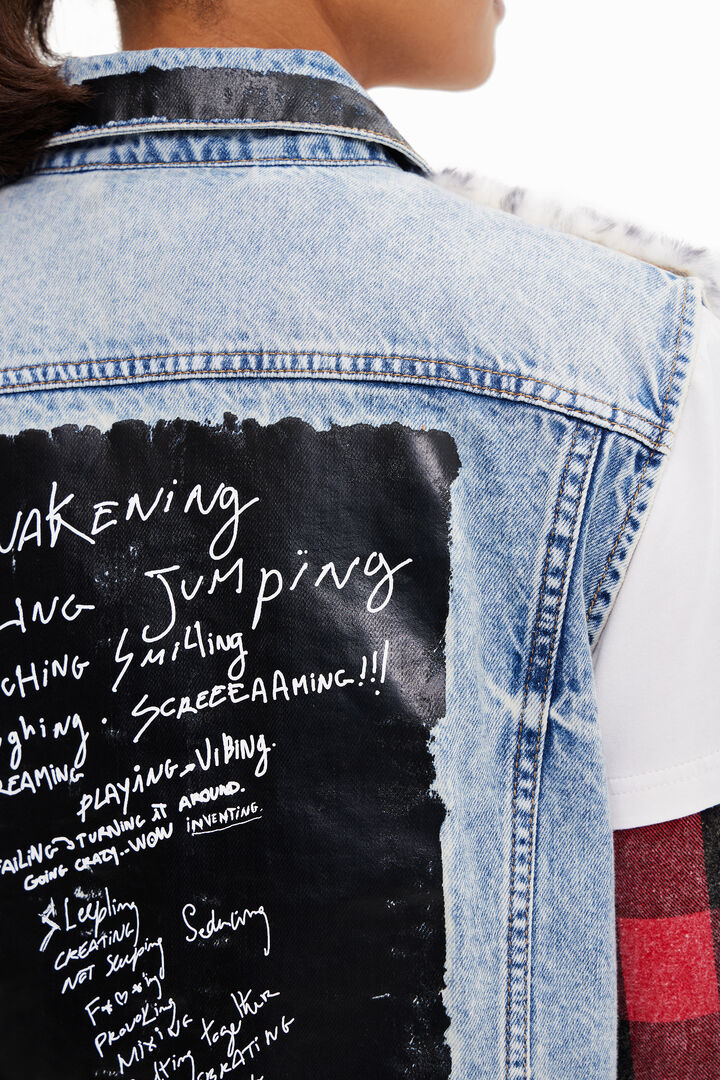 WAKENING
LING JUMPING
CHING SMILLING
ghing. SCREEEAAMING!!!
REAMING
PLAYING → VIBING.
FAILING → TURNING IT AROUND.
GOING CRAZY.-WOW INVENTING.
SLeepling
CREATING Seducing
NET Sleeping
F*♡*ing
PROVOKING
MIXING
tting together
BRATING